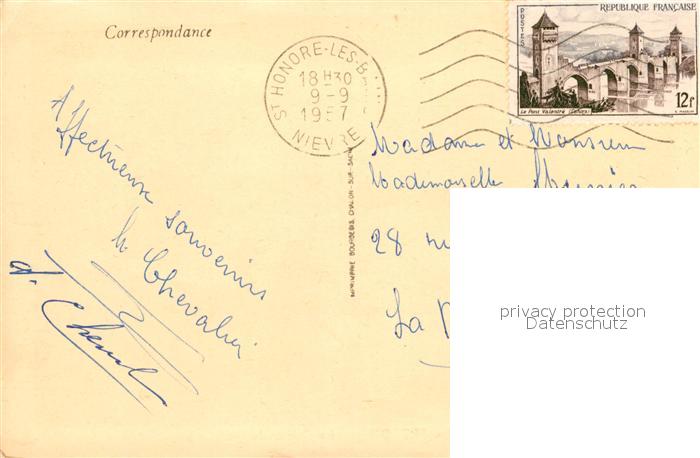 Correspondance
ST HONORE-LES-B
18H30
9-9
1957
NIEVRE
REPUBLIQUE FRANÇAISE
POSTES
Le Pont Valentré (Cahors)
12f
Affectueux souvenirs
Chevalier
IMPRIMERIE BOURGEOIS, CHALON-SUR-SAÔNE
Madame et Monsieur
Mademoiselle
28
La
privacy protection
Datenschutz